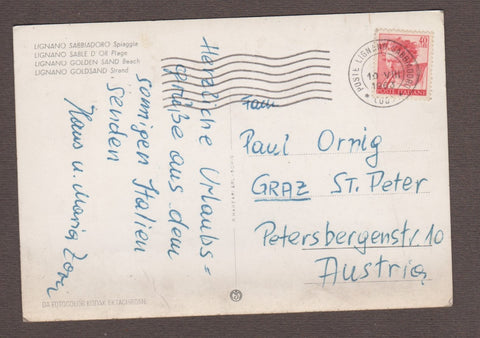 LIGNANO SABBIADORO Spiaggia
LIGNANO SABLE D'OR Plage
LIGNANO GOLDEN SAND Beach
LIGNANO GOLDSAND Strand
Herzliche Urlaubs=
grüße aus dem
sonnigen Italien
senden
Hans u. Maria
POSTE LIGNANO SABBIADORO
40
POSTE ITALIANE
Fam
Paul Ornig
GRAZ ST. Peter
Petersbergenstr. 10
Austria
DA FOTOCOLOR KODAK EKTACHROME